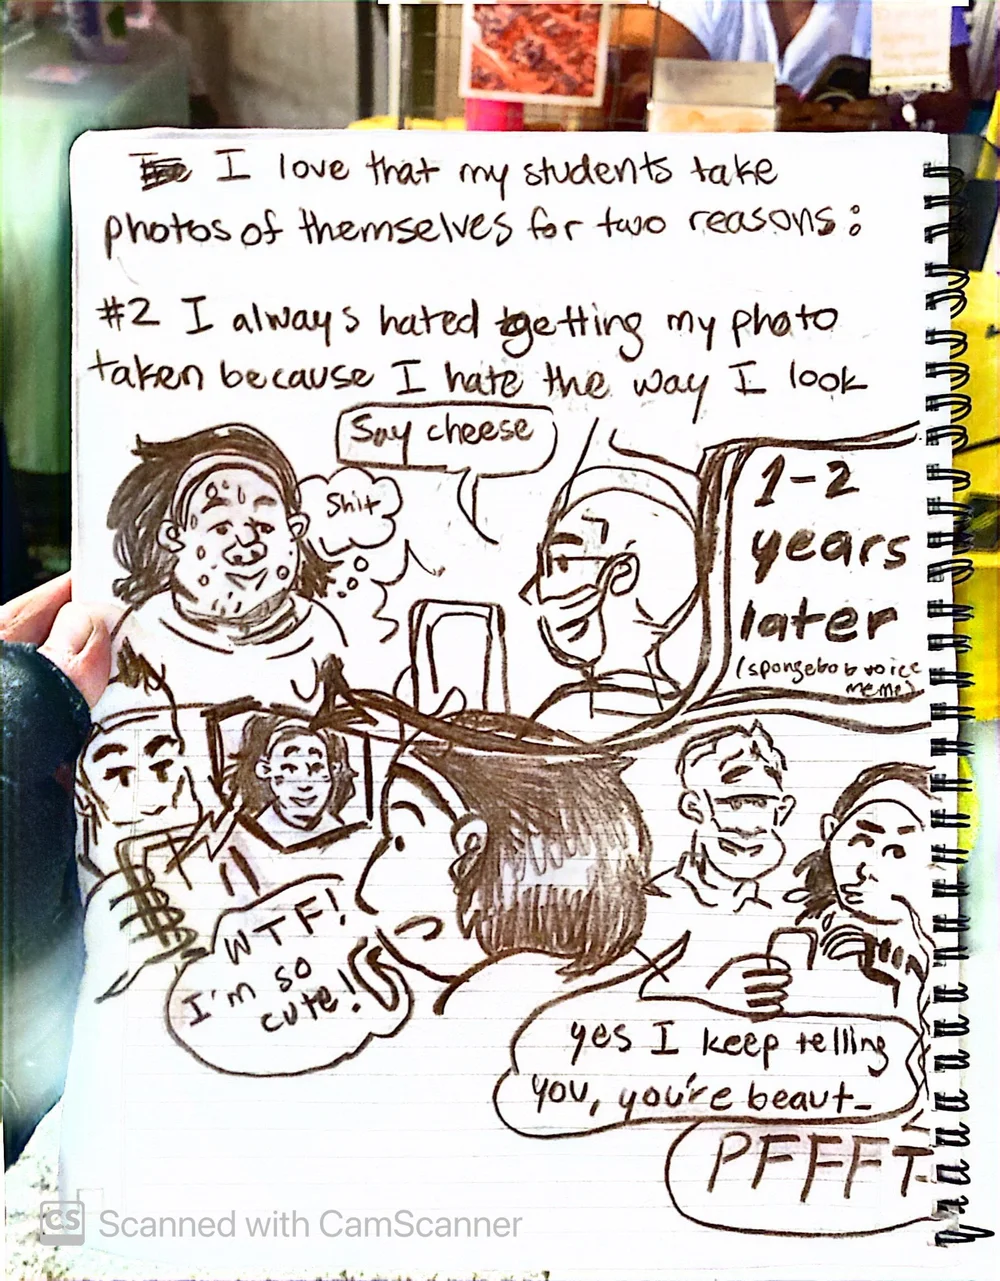 I love that my students take
photos of themselves for two reasons:
#2 I always hated getting my photo
taken because I hate the way I look
Say cheese
Shit
1-2
years
later
(spongebob voice
meme)
WTF!
I'm so
cute!
yes I keep telling
you, you're beaut-
PFFFT-
CS Scanned with CamScanner